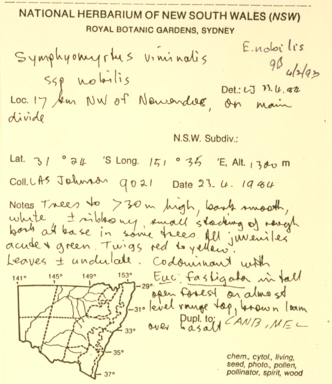 NATIONAL HERBARIUM OF NEW SOUTH WALES (NSW)
ROYAL BOTANIC GARDENS, SYDNEY
E. nobilis
Symphyomyrtus viminalis
9B 4/2/93
ssp nobilis
Det.: LJ 23.4.84
Loc. 17 km NW of Nowendoc, on main
divide
N.S.W. Subdiv.:
Lat. 31 ° 24 'S Long. 151 ° 35 'E, Alt. 1300 m
Coll. LAS Johnson 9021 Date 23.4.1984
Notes Trees to >30m high, bark smooth,
white ± ribbony, small stocking of rough
bark at base in some trees. All juveniles
acute & green. Twigs red to yellow.
Leaves ± undulate. Codominant with
Euc. fastigata in tall
open forest on almost
level range top, brown loam
over basalt
Dupl. to: CANB, MEL
141° 145° 149° 153°
29°
31°
33°
35°
37°
chem., cytol., living,
seed, photo., pollen,
pollinator, spirit, wood